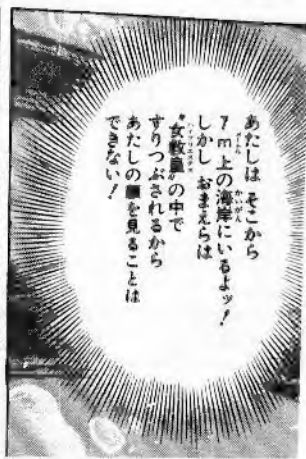 あたしは そこから
7m上の海岸にいるよッ!
しかし おまえらは
“女教皇”の中で
すりつぶされるから
あたしの顔を見ることは
できない!